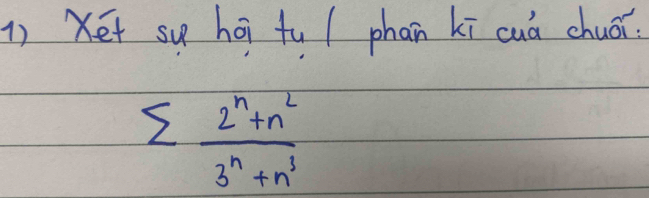 1) Xét sự hội tụ / phân kì cuả chuỗi:
∑ (2^n + n^2) / (3^n + n^3)